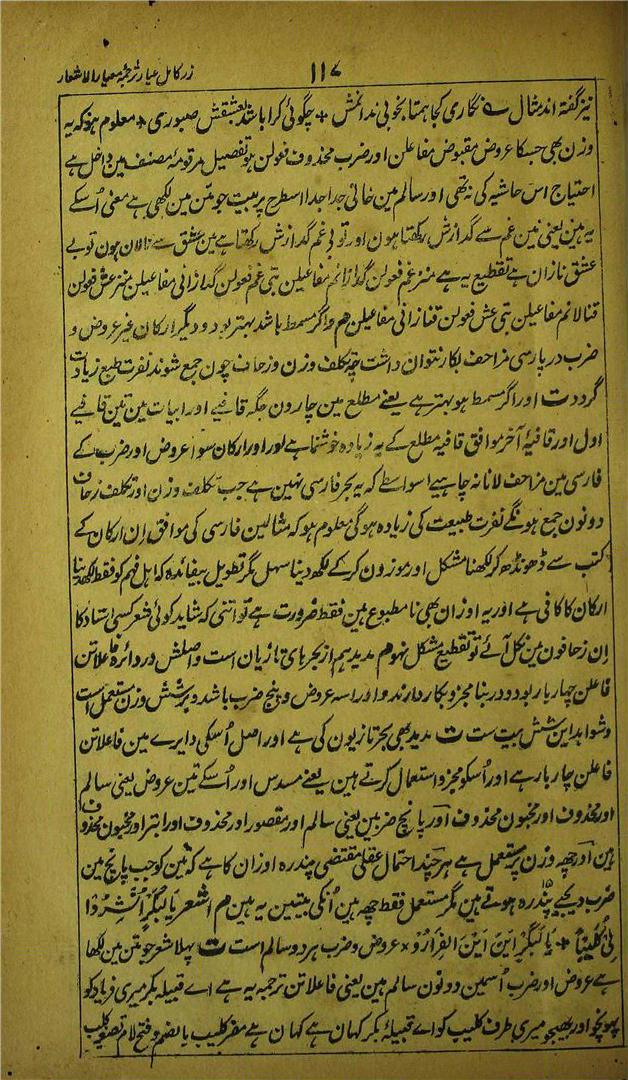 زر کامل عیار ترجمۂ معیار الاشعار
۱۱۷
نیز گفتہ اند مثال ے نگاری کجا ہمتا بخوبی ندانمش + چگوئی کرا باشد بعشقش صبوری + معلوم ہو کہ یہ
وزن بھی جسکا عروض مقبوض مفاعلن اور ضرب محذوف فعولن ہو تفصیل مرقومۂ مصنف مین داخل ہے
احتیاج اس حاشیہ کی نہ تھی اور سالم مین خانی جدا جدا اسطرح پر بیت جو متن مین لکھی ہے معنی اُسکے
یہ ہین یعنی مین غم سے گدازش رکھتا ہون اور تو بی غم گدازش رکھتا ہے مین عشق سے نالان ہون تو بے
عشق نازان ہے تقطیع یہ ہے منز غم فعولن گدازانم مفاعیلن تبی غم فعولن گدازانی مفاعیلن منز عش فعولن
قنالانم مفاعیلن تبی عش فعولن قنازانی مفاعیلن هم واگر مسمط باشد بہتر بود و دیگر ارکان غیر عروض و
ضرب در پارسی مزاحف بکار نتوان داشت چہ تکلف وزن و زحاف چون جمع شوند نفرت طبع زیادت
گردد ت اور اگر مسمط ہو بہتر ہے یعنے مطلع مین چارون جگہ قافیے اور ابیات مین تین قافیے
اول اور قافیۂ آخر موافق قافیۂ مطلع کے یہ زیادہ خوشنما ہے اور اور ارکان سوا عروض اور ضرب کے
فارسی مین مزاحف لانا نہ چاہیے اسواسطے کہ یہ بحر فارسی نہین ہے جب تکلف وزن اور تکلف زحاف
دونون جمع ہونگے نفرت طبیعت کی زیادہ ہوگی معلوم ہو کہ مثالین فارسی کی موافق ان ارکان کے
کتب سے ڈھونڈھ کر لکھنا مشکل اور موزون کرکے لکھ دینا سہل مگر تطویل بیفائدہ کہ اہل فہم کو فقط لکھدینا
ارکان کا کافی ہے اور یہ اوزان بھی نا مطبوع ہین فقط ضرورت ہے تو اتنی کہ شاید کوئی شعر کسی استاد کا
ان زحافون مین نکل آئے تو تقطیع مشکل نہو م مدید ہم از بحرہای تازیان است و اصلش در دائرہ فاعلاتن
فاعلن چہار بار بود و در بنا مجزو بکار دارند و اورا سہ عروض و پنج ضرب باشد و بر شش وزن مستعمل است
و شواہد این شش بیت ست ت مدید بھی بحر تازیون کی ہے اور اصل اُسکی دایرے مین فاعلاتن
فاعلن چار بار ہے اور اُسکو مجزو استعمال کرتے ہین یعنے مسدس اور اُسکے تین عروض یعنی سالم
اور محذوف اور مخبون محذوف اور پانچ ضربین یعنی سالم اور مقصور اور محذوف اور ابتر اور مخبون محذوف
ہین اور چھہ وزن پر مستعمل ہے ہر چند احتمال عقلی مقتضی پندرہ اوزان کا ہے کہ تین کو جب پانچ مین
ضرب دیجیے پندرہ ہوتے ہین مگر مستعمل فقط چھہ ہین اُنکی بیتین یہ ہین م اشعر یَا لَبَکْرٍ اَنْشِرُوْا
لِیْ کُلَیْبًا + یَا لَبَکْرٍ اَیْنَ اَیْنَ الفِرَارُوْ × عروض و ضرب ہر دو سالم است ت پہلا شعر جو متن مین لکھا
ہے عروض اور ضرب اُسمین دونون سالم ہین یعنی فاعلاتن ترجمہ یہ ہے اے قبیلۂ بکر میری فریاد کو
پہونچو اور بھیجو میری طرف کلیب کو اے قبیلۂ بکر کہان ہے کہان ہے مفر کلیب بالضم و فتح لام تصغیر کلب